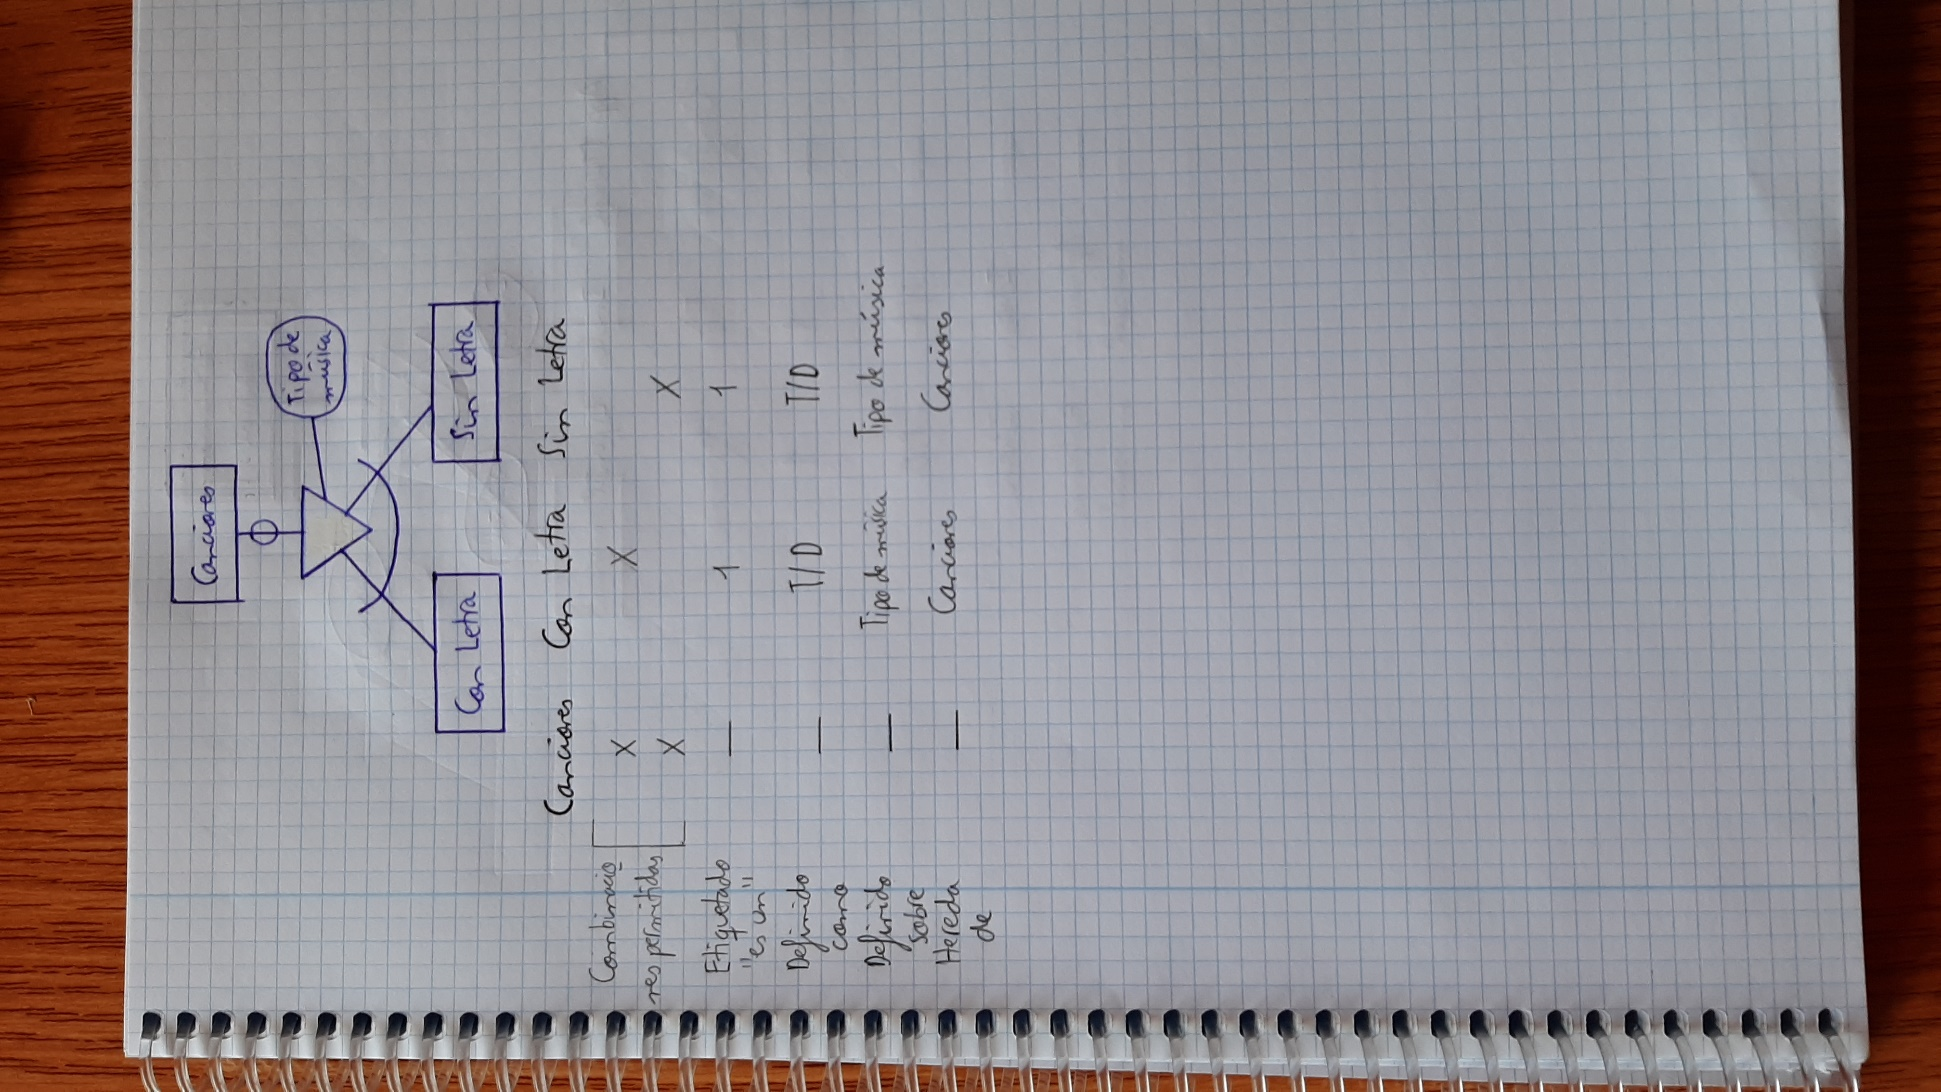 Canciones
Tipo de
música
Con Letra
Sin Letra
Canciones Con Letra Sin Letra
Combinacio
nes permitidas
X X
X X
Etiquetado
"es un"
— 1 1
Definido
como
— T/D T/D
Definido
sobre
— Tipo de música Tipo de música
Hereda
de
— Canciones Canciones